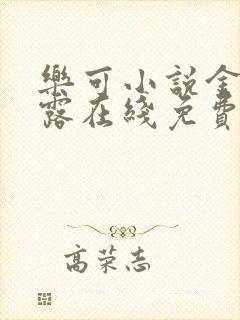 樂可小説金
露在綫免費
高荣志